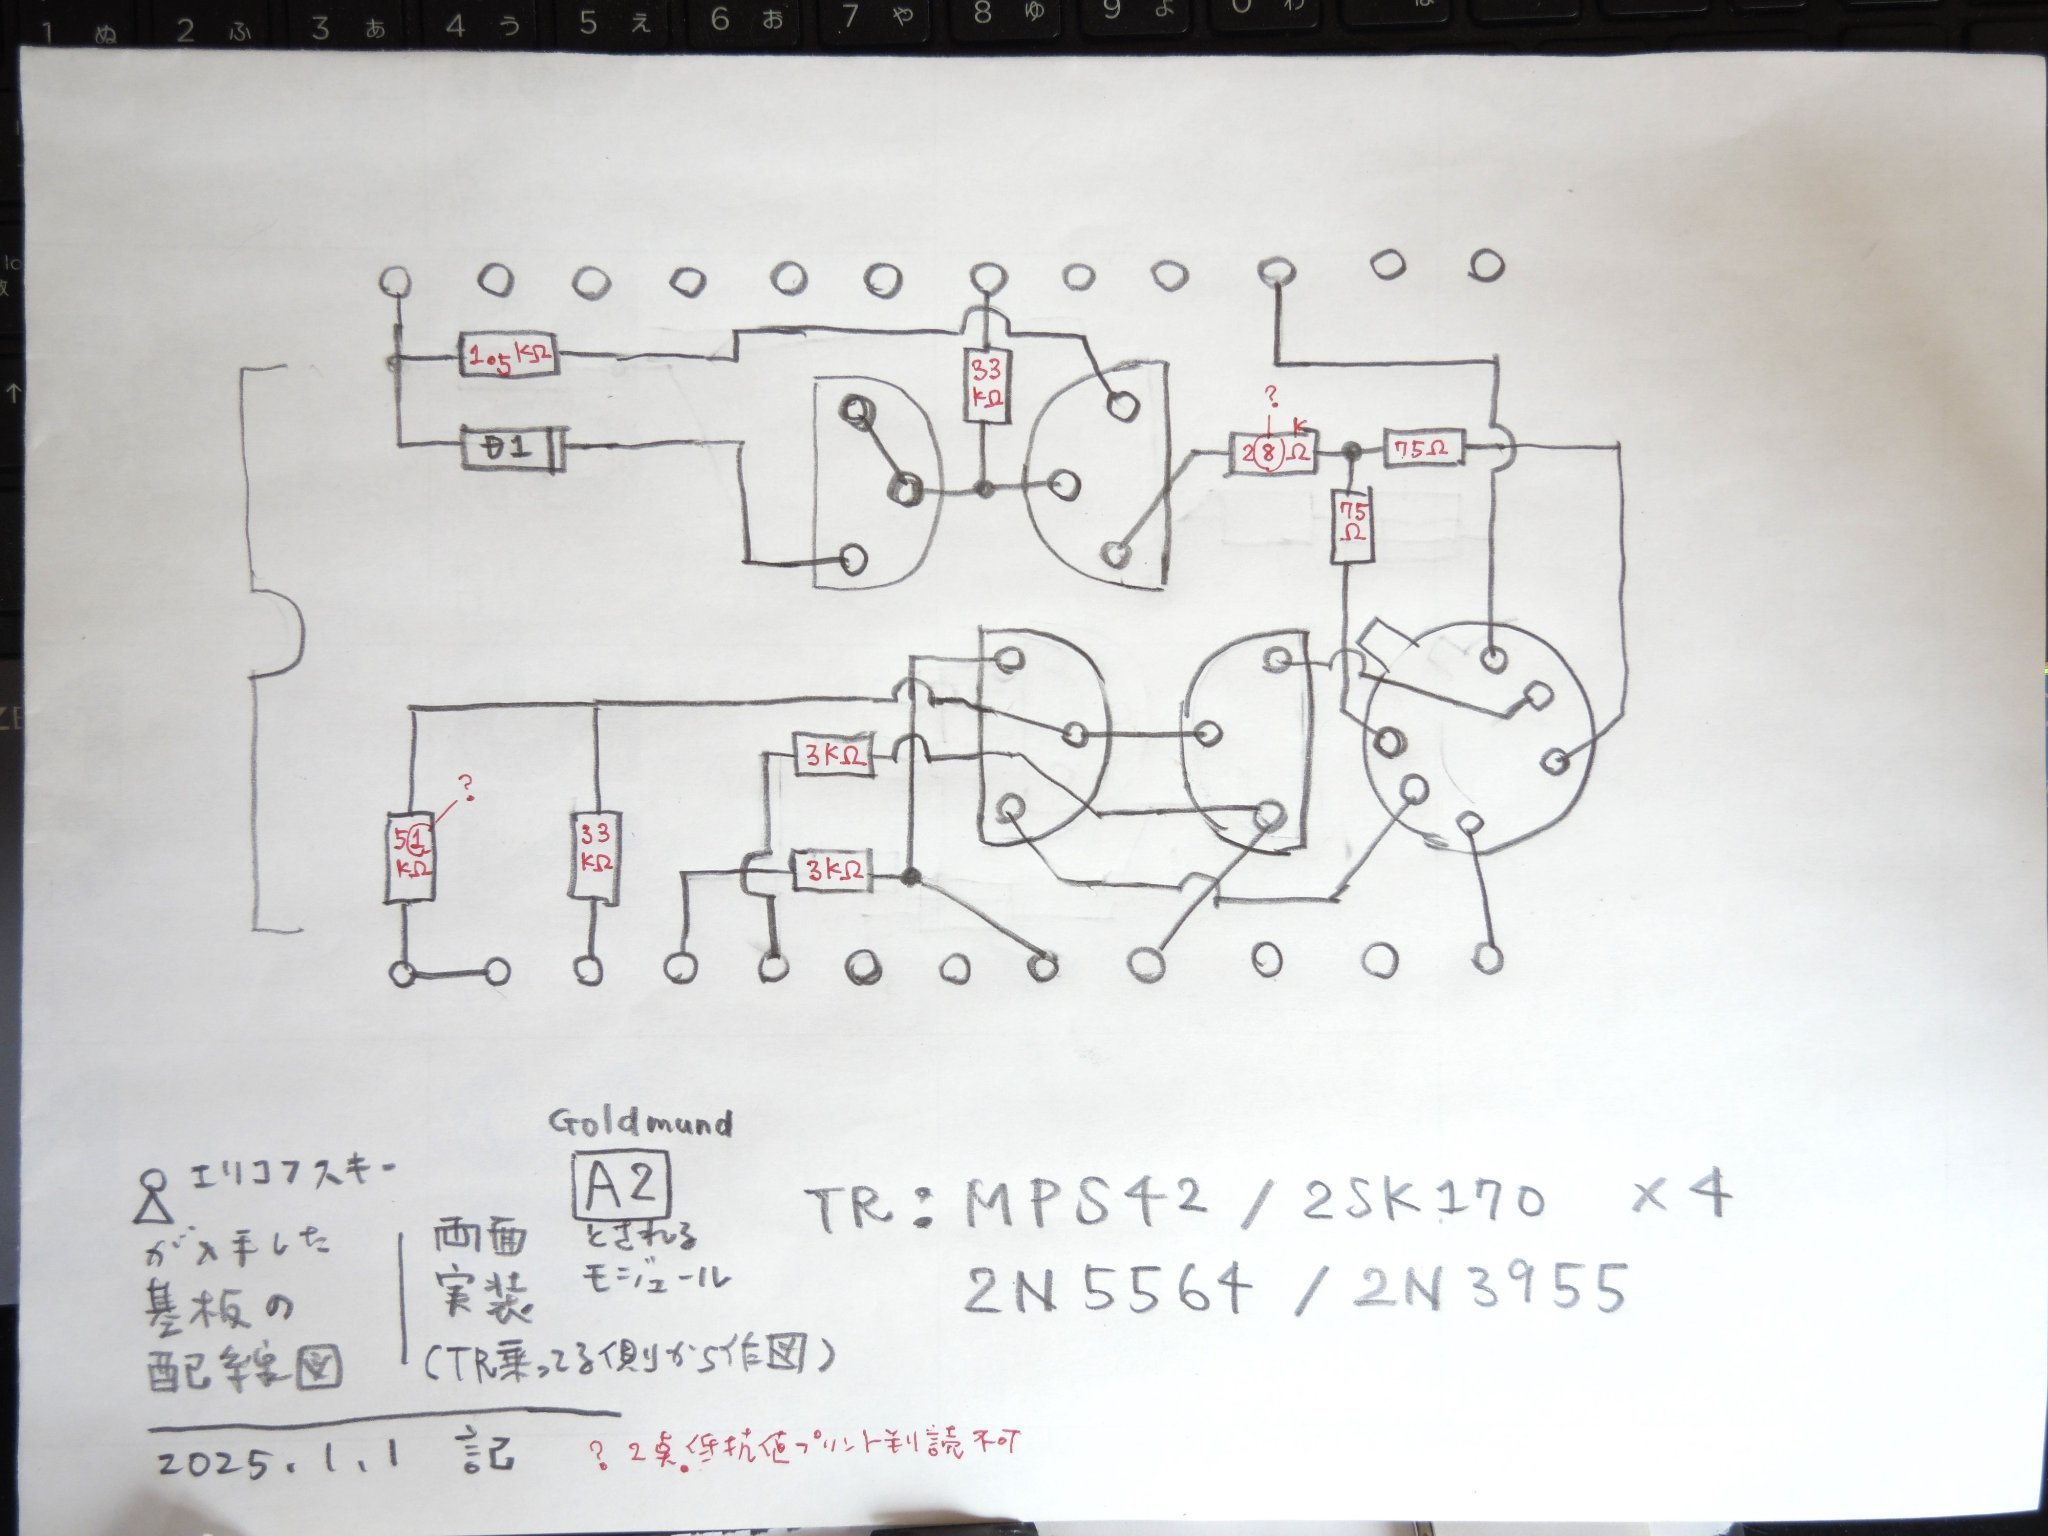 1 ぬ 2 ふ 3 あ 4 う 5 え 6 お 7 や 8 ゆ 9 よ 0 わ
1.5 kΩ
D1
33
kΩ
?
2 8 Ω K
75Ω
75
Ω
3kΩ
?
51
kΩ
33
kΩ
3kΩ
Goldmund
A2
とされる
モジュール
エリコフスキー
が入手した
基板の
配線図
両面
実装
(TR乗ってる側から作図)
TR: MPS42 / 2SK170 ×4
2N5564 / 2N3955
2025.1.1 記
? 2点.低抗値プリント判読不可